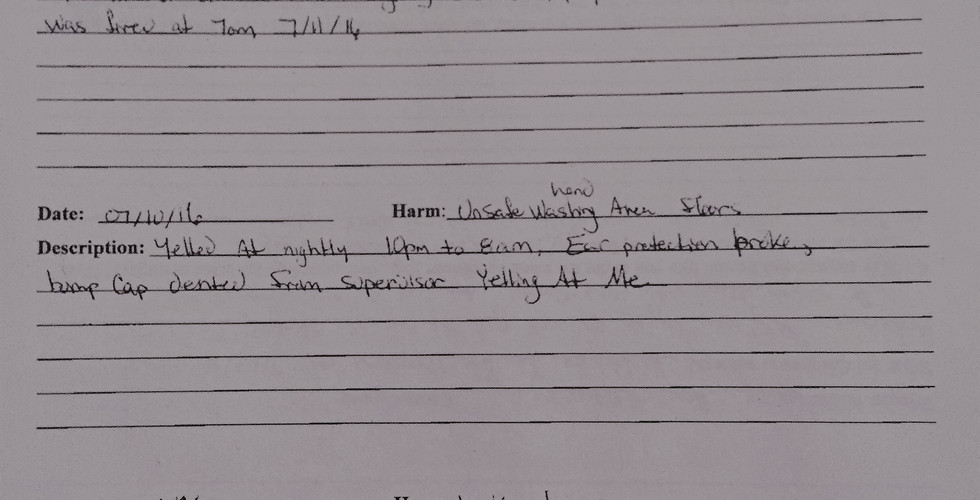 was fired at 7am 7/11/16
Date: 07/10/16 Harm: Unsafe hand Washing Area floors
Description: Yelled At nightly 10pm to 8am, Ear protection broke,
bump Cap dented from supervisor Yelling At Me